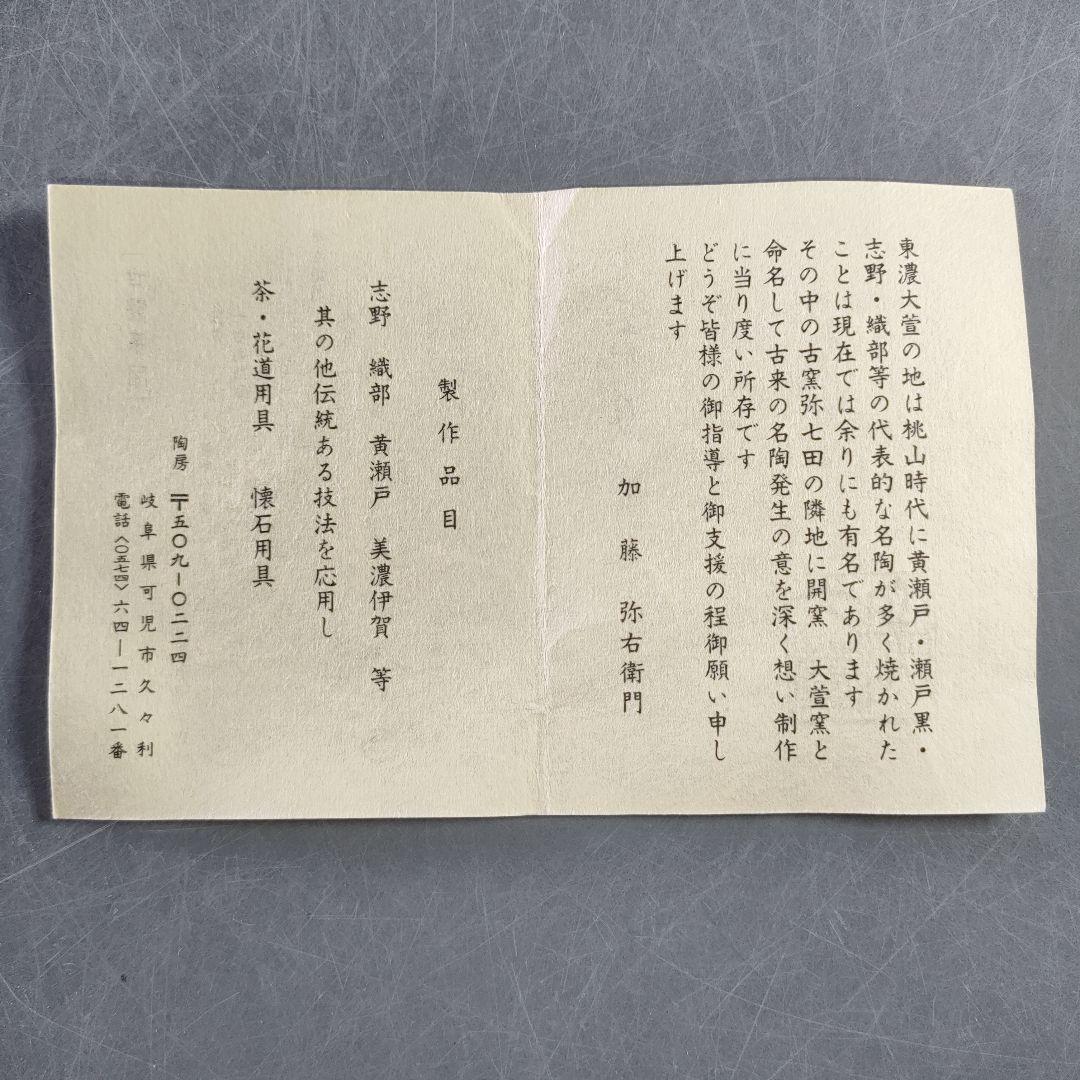 東濃大萱の地は桃山時代に黄瀬戸・瀬戸黒・
志野・織部等の代表的な名陶が多く焼かれた
ことは現在では余りにも有名であります
その中の古窯弥七田の隣地に開窯 大萱窯と
命名して古来の名陶発生の意を深く想い制作
に当り度い所存です
どうぞ皆様の御指導と御支援の程御願い申し
上げます
加藤 弥右衛門
製作品目
志野 織部 黄瀬戸 美濃伊賀 等
其の他伝統ある技法を応用し
茶・花道用具 懐石用具
陶房 〒五〇九－〇二二四
岐阜県可児市久々利
電話〈〇五七四〉六四－一二八一番